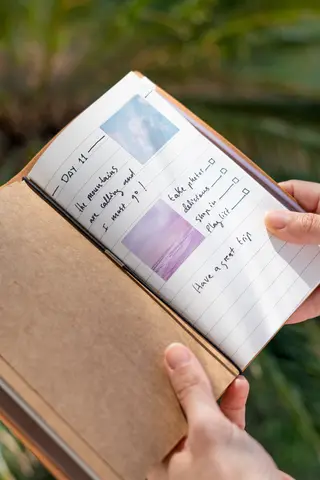 — DAY 11 —
the mountains
are calling and
I must go!
take photos
delicious
stop in
Play list
Have a great trip